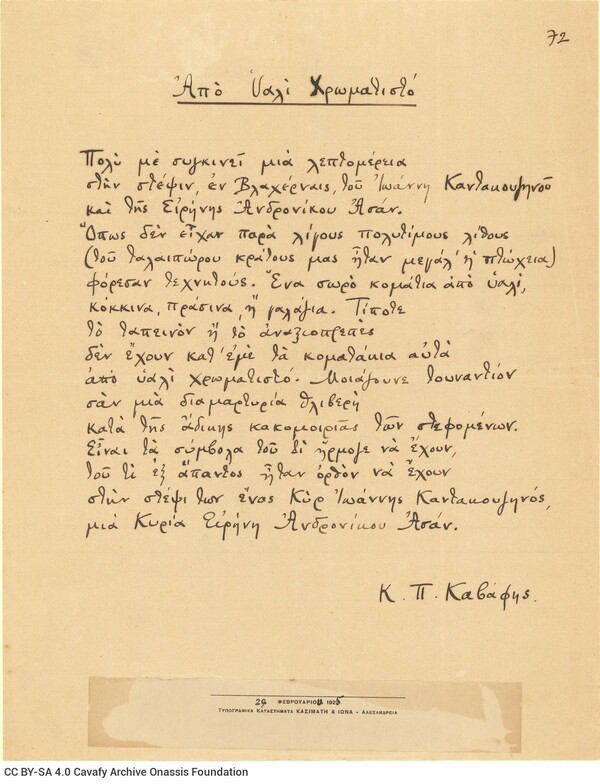 72
Ἀπὸ ὑαλὶ Χρωματιστό
Πολὺ μὲ συγκινεῖ μιὰ λεπτομέρεια
στὴν στέψιν, ἐν Βλαχέρναις, τοῦ Ἰωάννη Καντακουζηνοῦ
καὶ τῆς Εἰρήνης Ἀνδρονίκου Ἀσάν.
Ὅπως δὲν εἶχαν παρὰ λίγους πολυτίμους λίθους
(τοῦ ταλαιπώρου κράτους μας ἦταν μεγάλ' ἡ πτώχεια)
φόρεσαν τεχνητούς. Ἕνα σωρὸ κομάτια ἀπὸ ὑαλί,
κόκκινα, πράσινα, ἢ γαλάζια. Τίποτε
τὸ ταπεινὸν ἢ τὸ ἀναξιοπρεπὲς
δὲν ἔχουν κατ' ἐμὲ τὰ κοματάκια αὐτὰ
ἀπὸ ὑαλὶ χρωματιστό. Μοιάζουνε τουναντίον
σὰν μιὰ διαμαρτυρία θλιβερὴ
κατὰ τῆς ἄδικης κακομοιριᾶς τῶν στεφομένων.
Εἶναι τὰ σύμβολα τοῦ τί ἥρμοζε νὰ ἔχουν,
τοῦ τί ἐξ ἅπαντος ἦταν ὀρθὸν νὰ ἔχουν
στὴν στέψι των ἕνας Κὺρ Ἰωάννης Καντακουζηνός,
μιὰ Κυρία Εἰρήνη Ἀνδρονίκου Ἀσάν.
Κ. Π. Καβάφης.
29 ΦΕΒΡΟΥΑΡΙΟΥ 1925
ΤΥΠΟΓΡΑΦΙΚΑ ΚΑΤΑΣΤΗΜΑΤΑ ΚΑΣΙΜΑΤΗ & ΙΩΝΑ - ΑΛΕΞΑΝΔΡΕΙΑ
CC BY-SA 4.0 Cavafy Archive Onassis Foundation